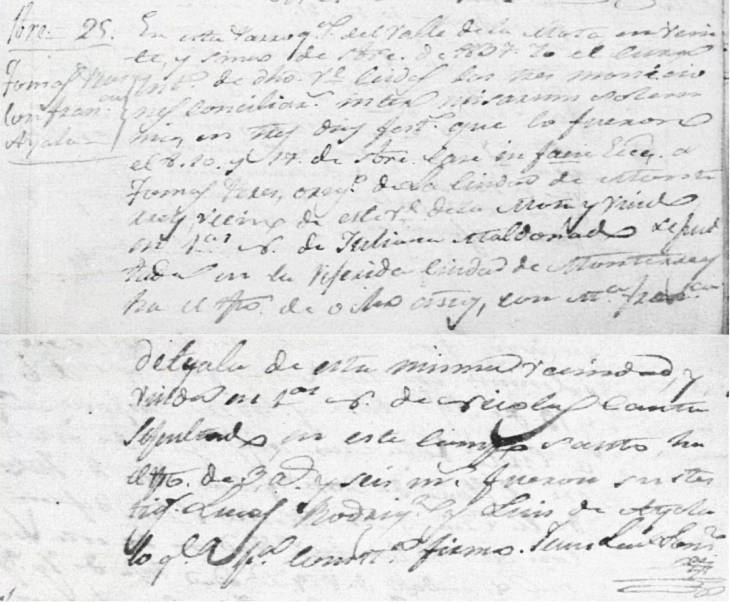 7bre. 25.
Tomas Perez
con Fran.ca
Ayala
En esta Parroq.l del Valle de la Mota en vein
te, y sinco de 7bre. de 1837. Yo el Cura
Int.o de dho. Ve. leidas las tres monicio
nes conciliar.s inter misarum solem
nia, en tres dias fest.s que lo fueron
el 8. 10. y 17. de 7bre. Casé in facie Ecca. a
Tomas Perez, orig.o de la Ciudad de Monte
rrey, vecino de este Ve. de la Mota y viud
en 1as n. de Juliana Maldonado Sepul
tada en la referida Ciudad de Monterrey
ha el tpo. de ocho años, con M.a Fran.ca
de Ayala de esta misma vecindad, y
viuda en 1as n. de Nicolas Cantu
Sepultado en este Campo santo, ha
el tpo. de 3 a.s y seis m. fueron sus tes
tig.s Lucas Rodrig.z y Luis de Ayala
lo q.e p.a const.a firmo.